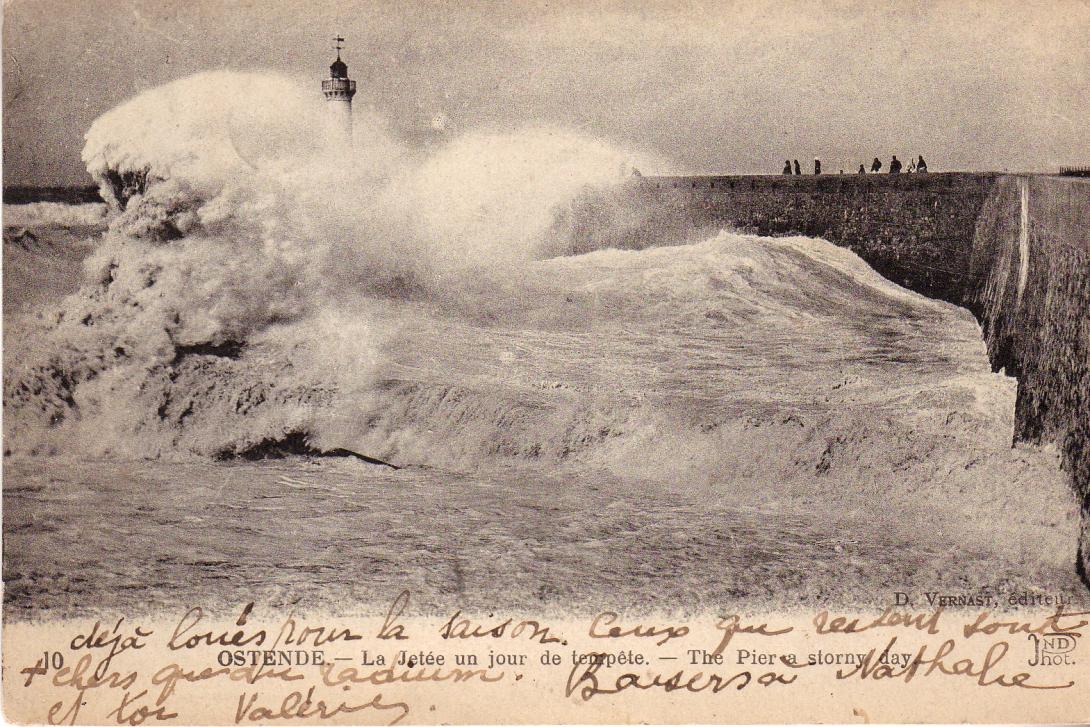 D. VERNAST, éditeur
déjà loués pour la saison. Ceux qui restent sont
10 OSTENDE. — La Jetée un jour de tempête. — The Pier a storny day.
ND Phot.
+ chers que du radium. Baisers à Nathalie
et toi Valérie.